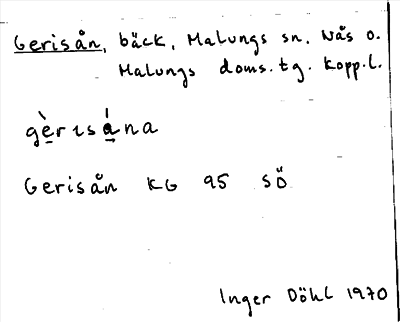 Gerisån, bäck, Malungs sn. Nås o.
Malungs doms. tg. Kopp. l.
gèrisána
Gerisån KG 95 SÖ
Inger Döhl 1970